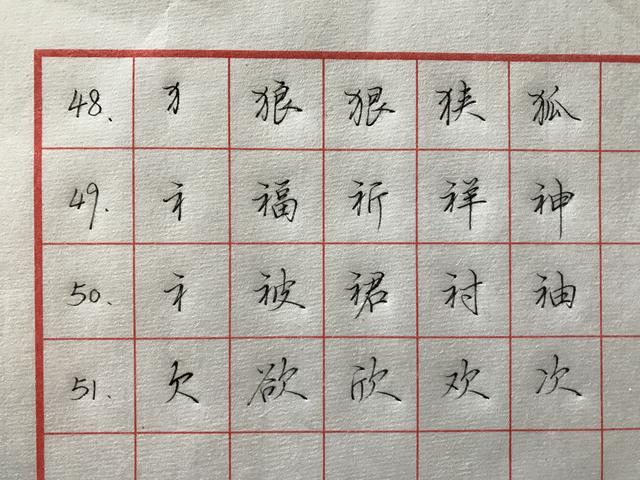 48. 犭 狼 狠 狭 狐
49. 礻 福 祈 祥 神
50. 衤 被 裙 衬 袖
51. 欠 欲 欣 欢 次